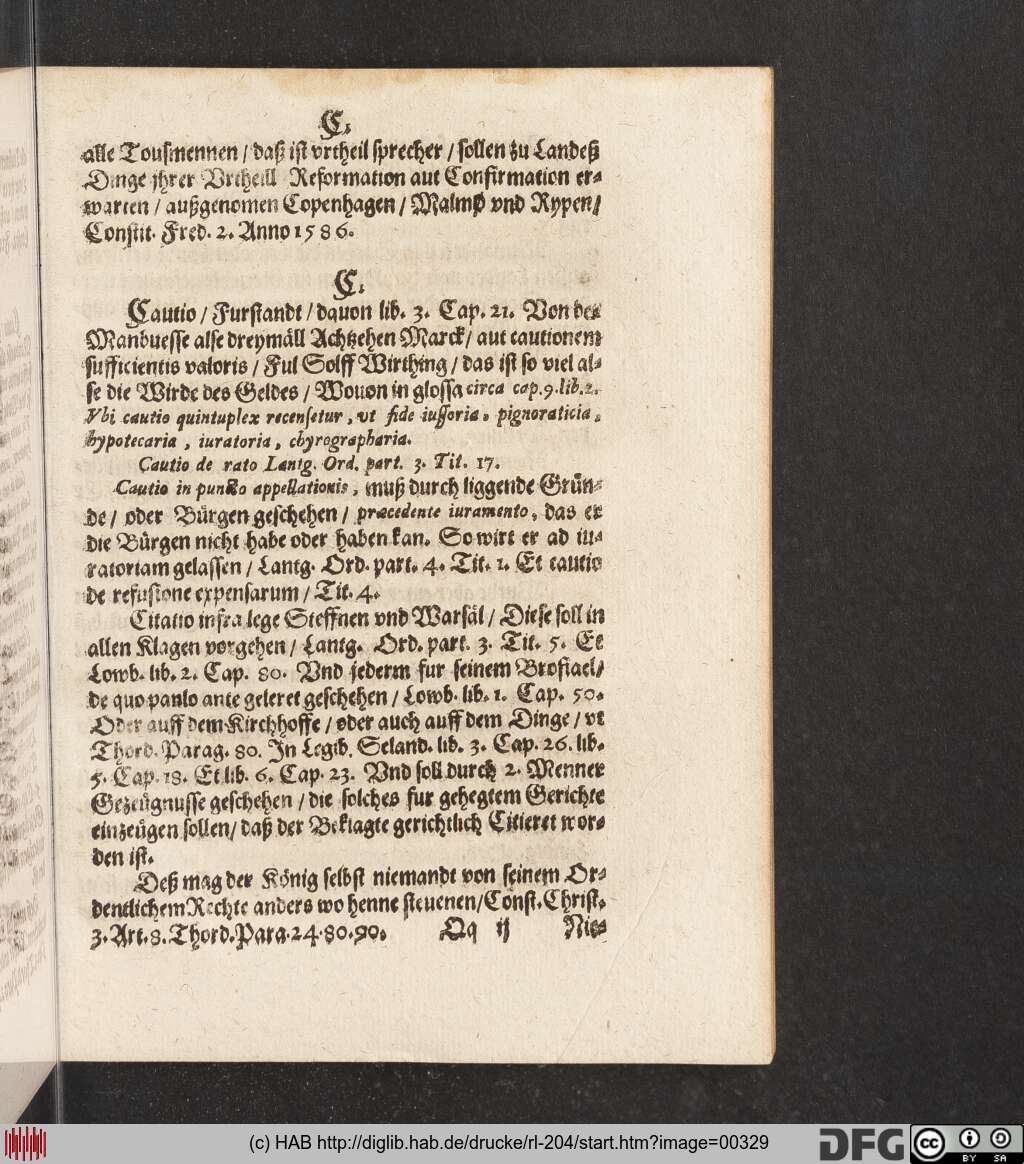 C.
alle Tousmennen / daß ist vrtheil sprecher / sollen zu Landeß
Dinge jhrer Vrtheill Reformation aut Confirmation er-
warten / außgenomen Copenhagen / Malmø vnd Rypen /
Constit. Fred. 2. Anno 1586.
C.
Cautio / Furstandt / dauon lib. 3. Cap. 21. Von der
Manbuesse alse dreymäll Achtzehen Marck / aut cautionem
sufficientis valoris / Ful Solff Wirthing / das ist so viel al-
se die Wirde des Geldes / Wouon in glossa circa cap. 9. lib. 2.
Vbi cautio quintuplex recensetur, vt fide iussoria, pignoraticia,
hypotecaria, iuratoria, chyrographaria.
Cautio de rato Lantg. Ord. part. 3. Tit. 17.
Cautio in puncto appellationis, muß durch liggende Grün-
de / oder Bürgen geschehen / præcedente iuramento, das er
die Bürgen nicht habe oder haben kan. So wirt er ad iu-
ratoriam gelassen / Lantg. Ord. part. 4. Tit. 1. Et cautio
de refusione expensarum / Tit. 4.
Citatio infra lege Steffnen vnd Warsäl / Diese soll in
allen Klagen vorgehen / Lantg. Ord. part. 3. Tit. 5. Et
Lowb. lib. 2. Cap. 80. Vnd jederm fur seinem Brofiael /
de quo paulo ante geleret geschehen / Lowb. lib. 1. Cap. 50.
Oder auff dem Kirchhoffe / oder auch auff dem Dinge / vt
Thord. Parag. 80. In Legib. Seland. lib. 3. Cap. 26. lib.
5. Cap. 18. Et lib. 6. Cap. 23. Vnd soll durch 2. Menner
Gezeügnusse geschehen / die solches fur gehegtem Gerichte
einzeügen sollen / daß der Beklagte gerichtlich Citieret wor-
den ist.
Deß mag der König selbst niemandt von seinem Or-
dentlichem Rechte anders wo henne steuenen / Const. Christ.
3. Art. 8. Thord. Para. 24. 80. 90. Qq ij Nie-
(c) HAB http://diglib.hab.de/drucke/rl-204/start.htm?image=00329
DFG cc BY SA